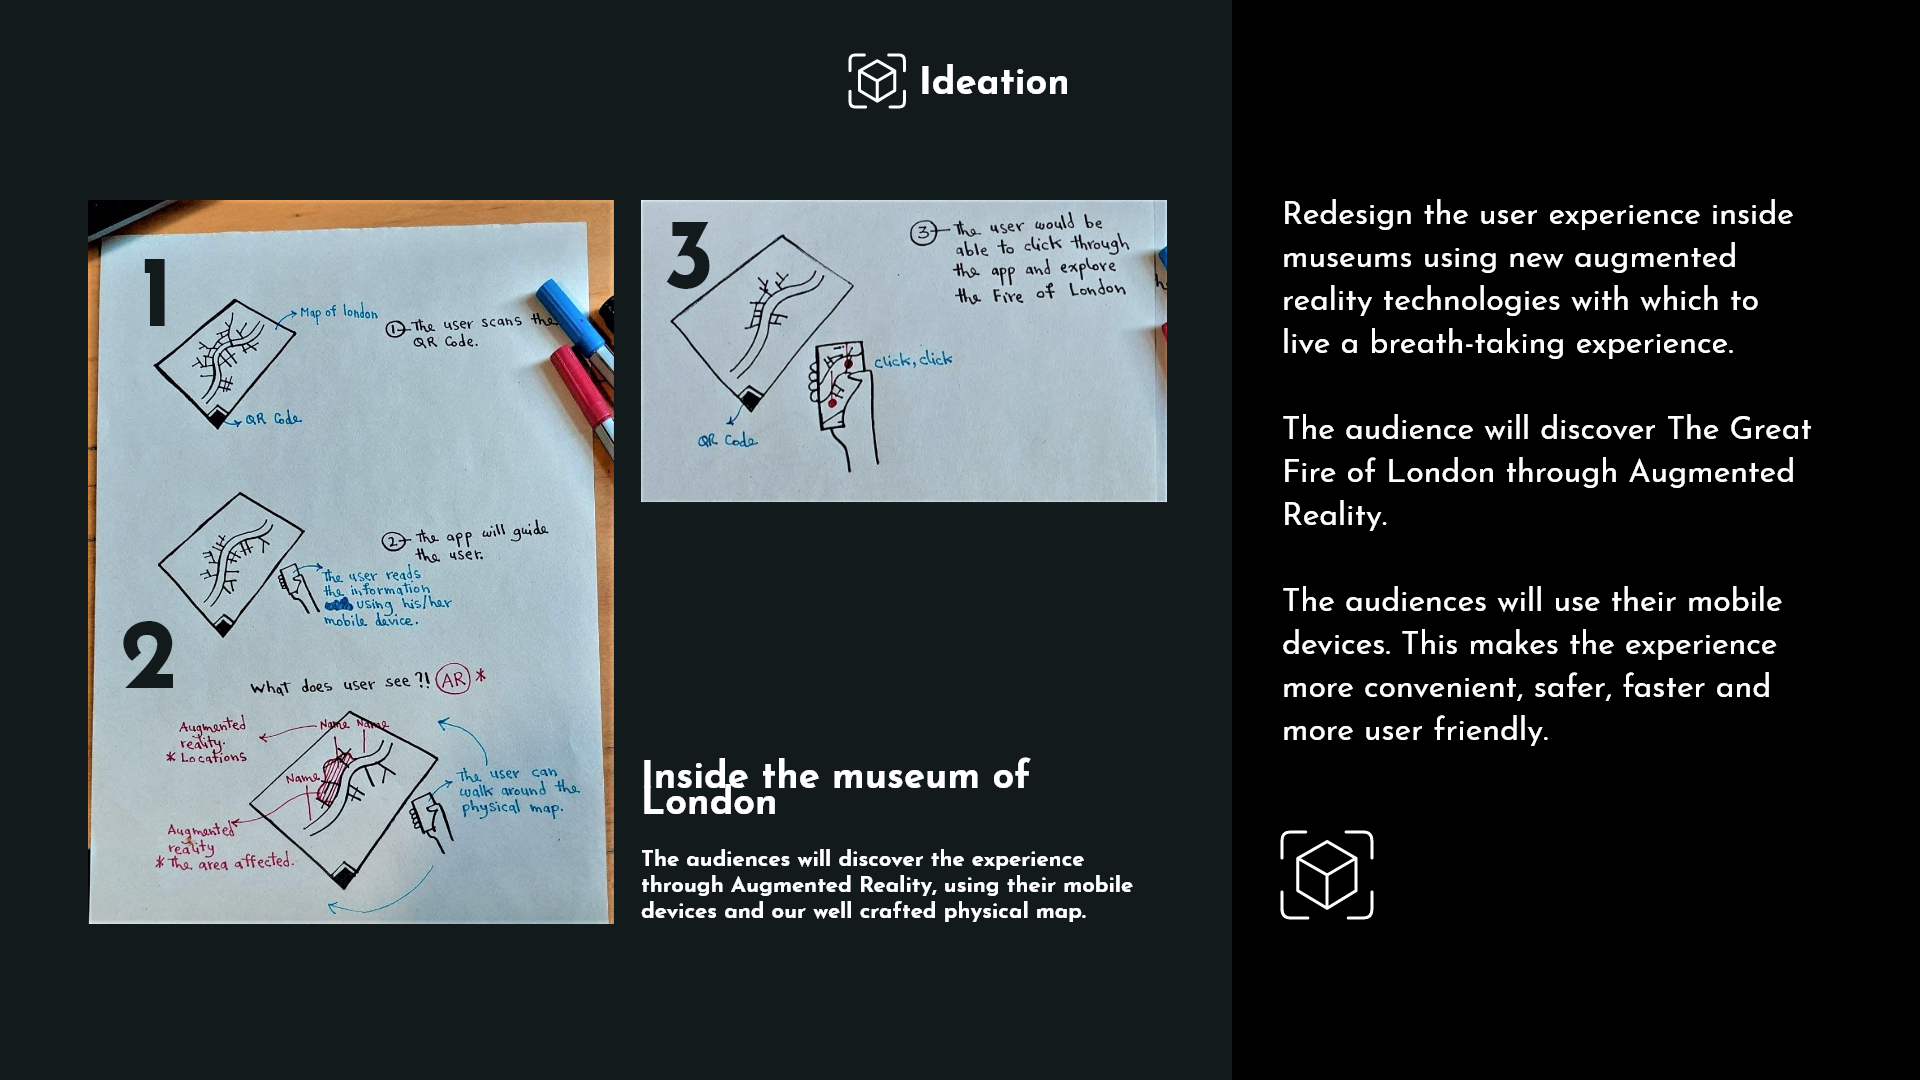 Ideation
1
Map of london
1 The user scans the
QR Code.
QR Code
2 The app will guide
the user.
The user reads
the information
using his/her
mobile device.
2
What does user see ?! AR *
Augmented
reality.
* Locations
Name Name
Name
The user can
walk around the
physical map.
Augmented
reality
* The area affected.
3
3 The user would be
able to click through
the app and explore
the Fire of London
click, click
QR Code
Inside the museum of
London
The audiences will discover the experience
through Augmented Reality, using their mobile
devices and our well crafted physical map.
Redesign the user experience inside
museums using new augmented
reality technologies with which to
live a breath-taking experience.
The audience will discover The Great
Fire of London through Augmented
Reality.
The audiences will use their mobile
devices. This makes the experience
more convenient, safer, faster and
more user friendly.